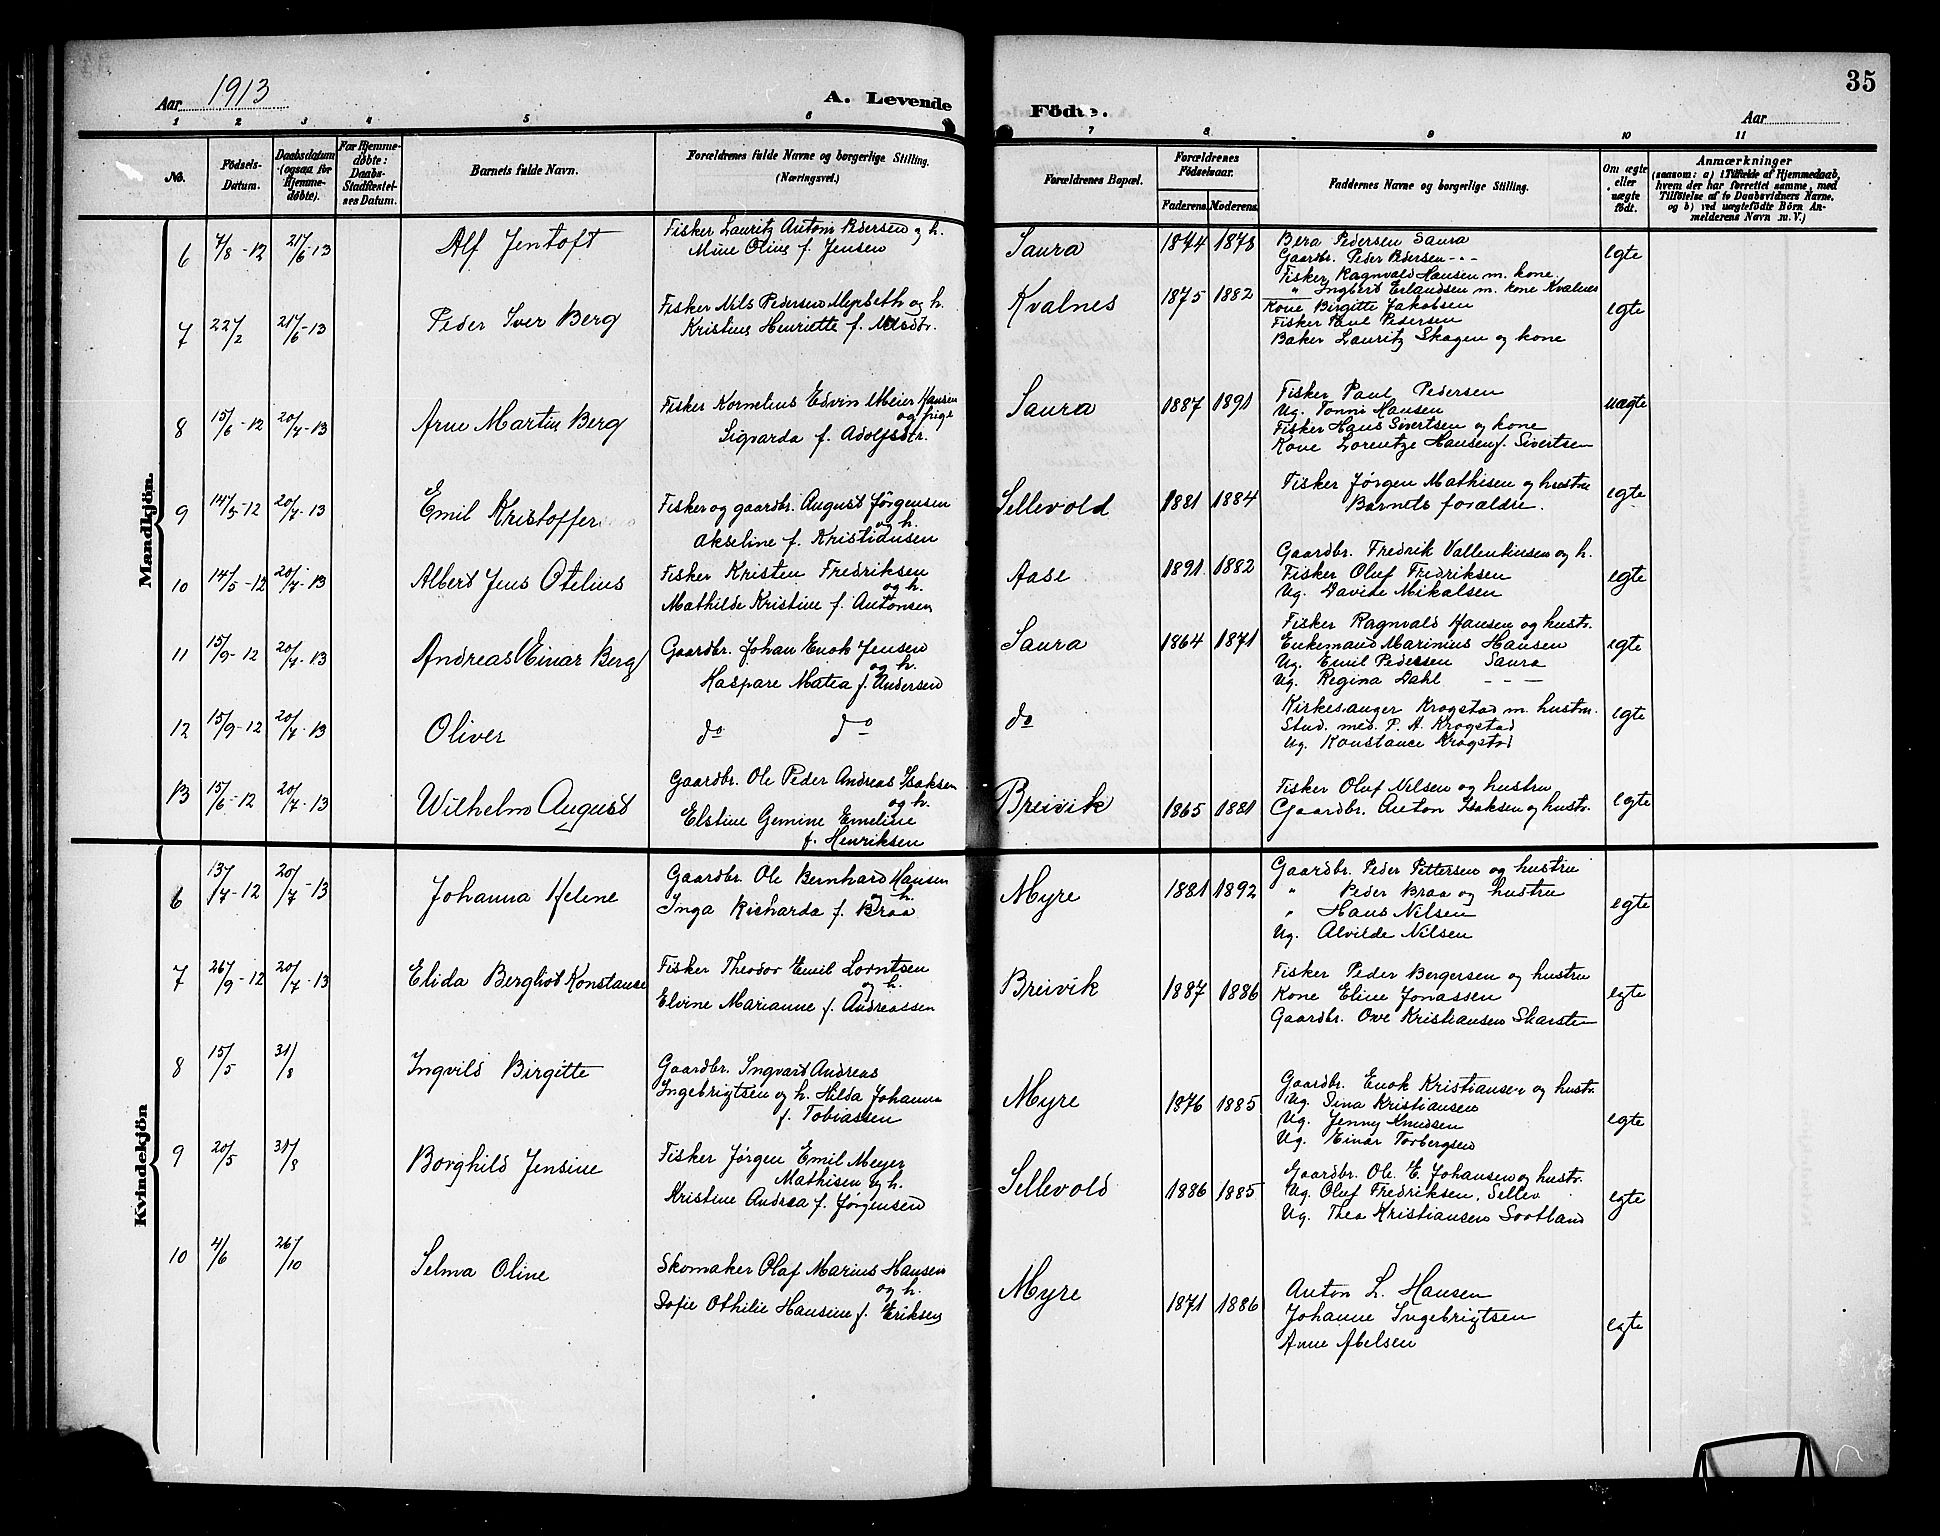 35
Aar 1913
A. Levende Födte.
Aar
1 2 3 4 5 6 7 8 9 10 11
No.
Födsels-Datum.
Daabsdatum (ogsaa for Hjemmedøbte).
For Hjemmedøbte: Daabs-Stadfæstelses Datum.
Barnets fulde Navn.
Forældrenes fulde Navne og borgerlige Stilling. (Næringsvei.)
Forældrenes Bopæl.
Forældrenes Födselsaar.
Faderens. Moderens.
Faddernes Navne og borgerlige Stilling.
Om ægte eller uægte födt.
Anmærkninger
(saasom: a) i Tilfælde af Hjemmedaab, hvem der har forrettet samme, med Tilföielse af to Daabsvidners Navne, og b) ved uægtefödte Börn Anmelderens Navn m. V.)
Mandkjön.
6 7/8-12 21/6-13 Alf Jentoft
Fisker Lauritz Anton Pedersen og h.
Mine Olius f. Jensen
Saura 1874 1878
Bera Pedersen Saura
Gaardbr. Peder Pedersen - - -
Fisker Ragnvald Hansen m. kone
egte
7 22/2 21/6-13 Peder Iver Berg
Fisker Nils Pedersen og h.
Kristine Henriette f.
Kvalnes 1875 1882
" Ingbert Erlandsen m. kone Kvalnes
Kone Birgitte Jakobsen
Fisker Paul Pedersen
Baker Lauritz Skagen og kone
egte
8 15/6-12 20/7-13 Arne Martin Berg
Fisker Kornelius Edvin Meier Hansen
og pige
Sigvarda f. Adolfsdtr.
Saura 1887 1891
Fisker Paul Pedersen
Ug. Tonni Hansen
Fisker Hans Sivertsen og kone
Kone Lorentze Hansen f. Sivertsen
uægte
9 14/5-12 20/7-13 Emil Kristoffer
Fisker og gaardbr. August Jørgensen
og h.
Akseline f. Kristiansen
Sellevold 1881 1884
Fisker Jørgen Mathisen og hustru
Barnets forældre.
egte
10 14/5-12 20/7-13 Albert Jens Otelius
Fisker Kristen Fredriksen
og h.
Mathilde Kristine f. Antonsen
Aase 1891 1882
Gaardbr. Fredrik Vallentinsen og h.
Fisker Oluf Fredriksen
Ug. Davide Mikalsen
egte
11 15/9-12 20/7-13 Andreas Einar Berg
Gaardbr. Johan Enok Jensen
og h.
Kaspare Matea f. Andersen
Saura 1864 1871
Fisker Ragnvald Hansen og hustr.
Enkemand Marinius Hansen
Ug. Emil Pedersen Saura
Ug. Regina Dahl - - -
egte
12 15/9-12 20/7-13 Oliver
do do
do
Kirkesanger Krogstad m. hustru.
Stud. med. P. A. Krogstad
Ug. Konstance Krogstad
egte
13 15/6-12 20/7-13 Wilhelm August
Gaardbr. Ole Peder Andreas Isaksen
og h.
Elstine Gemine Emeline
f. Henriksen
Breivik 1865 1881
Fisker Oluf Nilsen og hustru
Gaardbr. Anton Isaksen og hustr.
egte
Kvindekjön
6 13/7-12 20/7-13 Johanna Helene
Gaardbr. Ole Bernhard Hansen
og h.
Inga Richarda f. Braa
Myre 1881 1892
Gaardbr. Peder Pettersen og hustru
" Peder Braa og hustru
" Hans Nilsen
Ug. Alvilde Nilsen
egte
7 26/9-12 20/7-13 Elida Bergliot Konstanse
Fisker Theodor Emil Lorntsen
og h.
Elvine Marianne f. Andreassen
Breivik 1887 1886
Fisker Peder Bergersen og hustru
Kone Eline Jonassen
Gaardbr. Ove Kristiansen Skarsten
egte
8 15/5 31/8 Ingvild Birgitte
Gaardbr. Ingvart Andreas
Ingebrigtsen og h. Hilda Johanna
f. Tobiassen
Myre 1876 1885
Gaardbr. Enok Kristiansen og hustr.
Ug. Sina Kristiansen
Ug. Jenny Knudsen
Ug. Einar Torbergsen
egte
9 20/5 31/8 Borghild Jensine
Fisker Jørgen Emil Meyer
Mathisen og h.
Kristine Andrea f. Jørgensen
Sellevold 1886 1885
Gaardbr. Ole E. Johansen og hustr.
Ug. Oluf Fredriksen, Sellev.
Ug. Thea Kristiansen Sootland
egte
10 4/6 26/10 Selma Oline
Skomaker Olaf Marius Hansen
og h.
Sofie Othilie Hansine f. Eriksen
Myre 1871 1886
Anton L. Hansen
Johanne Ingebrigtsen
Anne Abelsen
egte